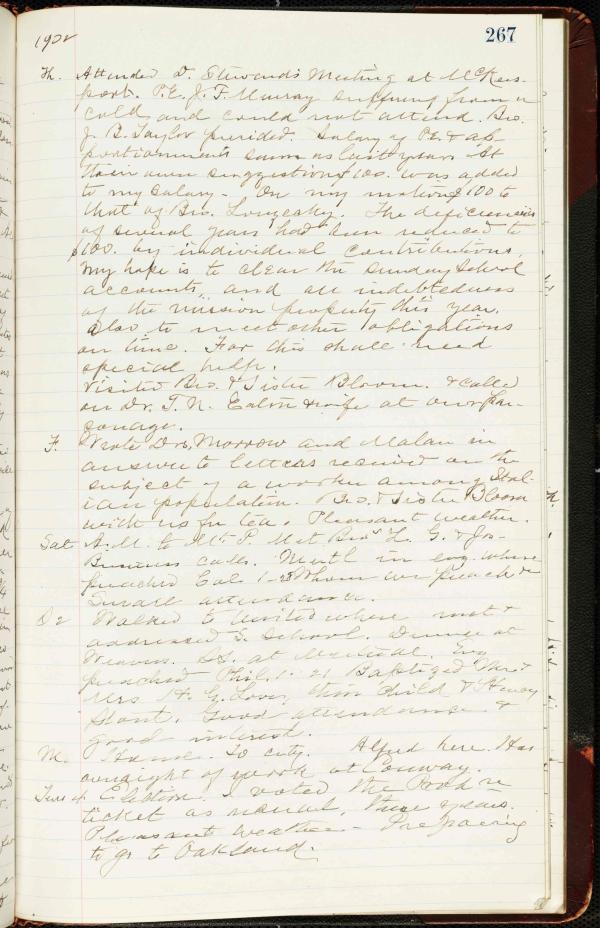 1902
267
Th. Attended D. Steward's Meeting at McKees-
port. P.E. J. F. Murray suffering from a
cold, and could not attend. Bro.
J. B. Taylor presided. Salary of P.E. & ap-
portionments same as last year. At
their own suggestion $100. was added
to my salary - On my motion $100 to
that of Bro. The deficiencies
of several years had been reduced to
$100. by individual contributions.
My hope is to clear the Sunday School
accounts, and all indebtedness
of the mission property this year.
Also to meet other obligations
on time. For this shall need
special help.
Visited Bro. & Sister Bloom. & called
on Dr. T. N. Eaton & wife at our par-
sonage.
F. Wrote Drs. Morrow and Malan in
answer to letters received on the
subject of a worker among Ital-
ian population. Bro. & Sister Bloom
with us for tea. Pleasant weather.
Sat. A.M. to Mt. P. Met Bros H. G. & Jos-
Business calls. Mutl in evg. where
preached Col. 1-28 Whom we preach &
Small attendance.
D 2 Walked to United where met &
addressed S. School. Dinner at
Weavers. S.S. at Evg
preached Phil. 1- 21 Baptized Mr. &
Mrs. H. G. Love, their child & Henry
Stant. Good attendance &
good interest.
M. Home. To city. Alfred here. Has
oversight of work at Conway.
Tues 4 Election. I voted the Prohi
ticket as usual, these years.
Pleasant weather - Preparing
to go to Oakland.